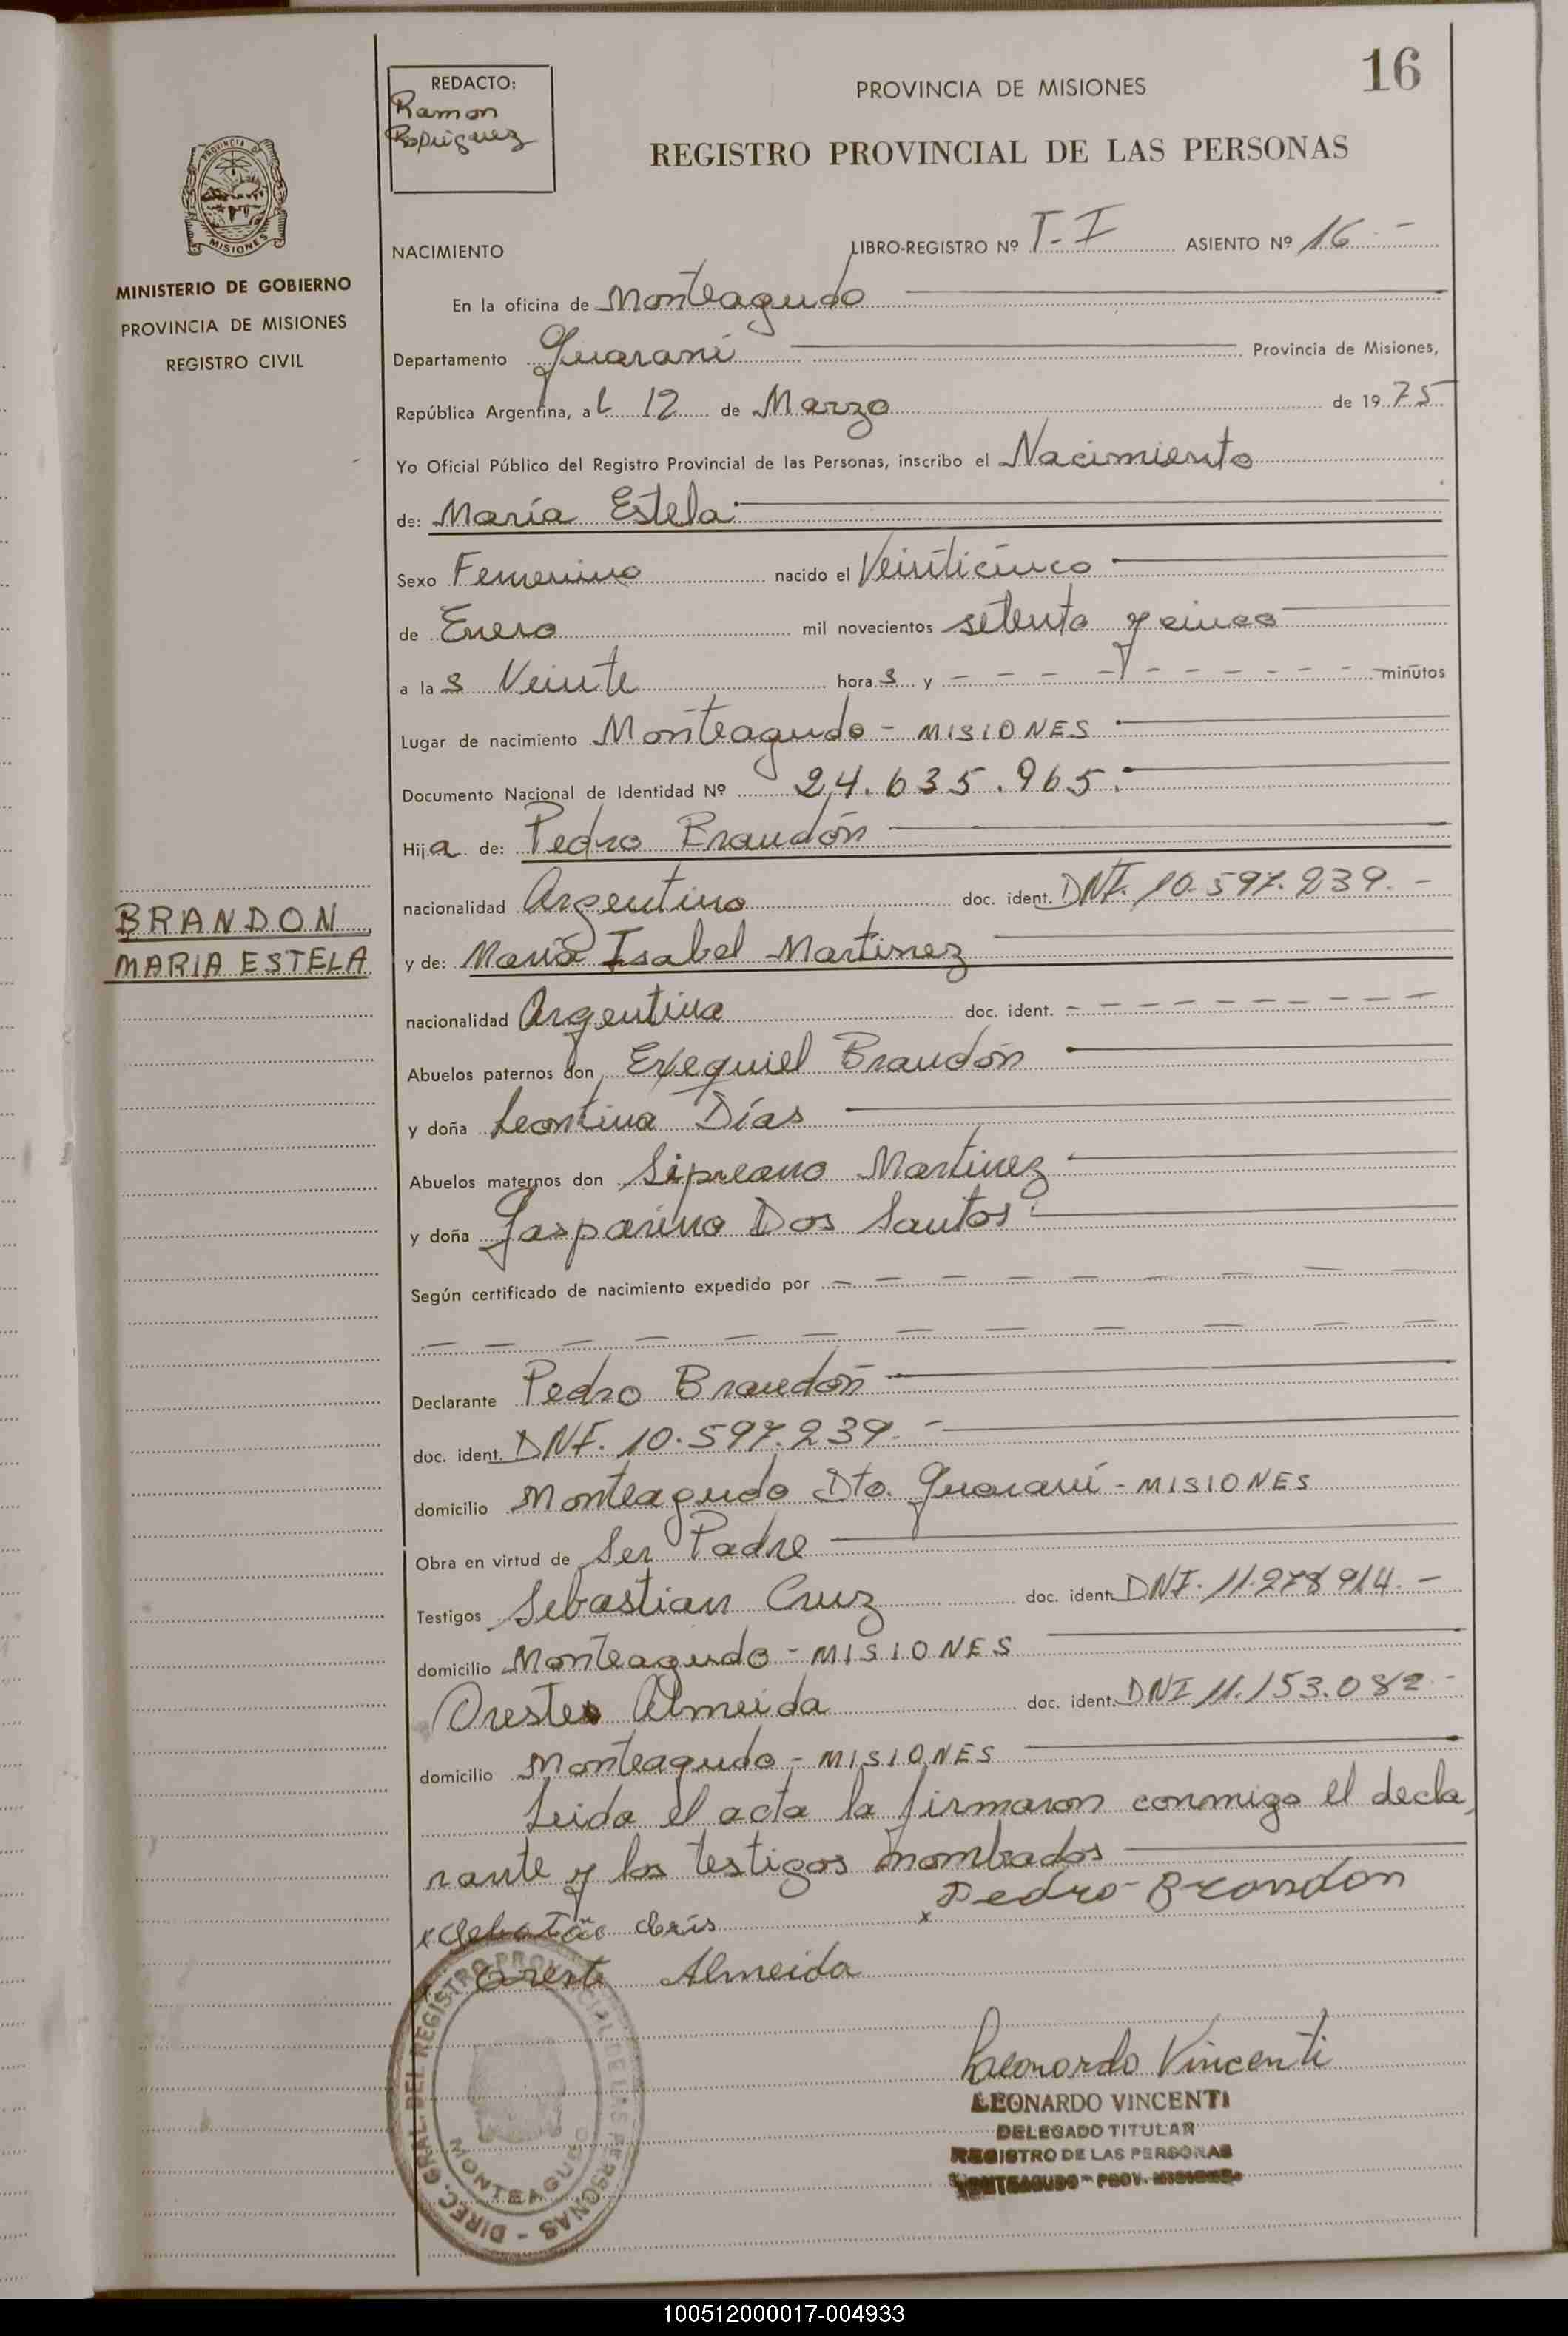 16
REDACTO:
Ramon
Rodriguez
PROVINCIA DE MISIONES
REGISTRO PROVINCIAL DE LAS PERSONAS
PROVINCIA DE
MISIONES
MINISTERIO DE GOBIERNO
PROVINCIA DE MISIONES
REGISTRO CIVIL
NACIMIENTO LIBRO-REGISTRO Nº T-I ASIENTO Nº 16 -
En la oficina de Monteagudo
Departamento Guaraní Provincia de Misiones,
República Argentina, al 12 de Marzo de 1975
Yo Oficial Público del Registro Provincial de las Personas, inscribo el Nacimiento
de: María Estela
Sexo Femenino nacido el Veinticinco
de Enero mil novecientos setenta y cinco
a las Veinte horas y - - - - - - - - - - minutos
Lugar de nacimiento Monteagudo - MISIONES
Documento Nacional de Identidad Nº 24.635.965.
Hija de: Pedro Brandón
nacionalidad Argentino doc. ident. DNI. 10.597.239. -
BRANDON
MARIA ESTELA
y de: María Isabel Martinez
nacionalidad Argentina doc. ident. - - - - - - - - - -
Abuelos paternos don Exequiel Brandón
y doña Leontina Días
Abuelos maternos don Sipreano Martinez
y doña Gasparina Dos Santos
Según certificado de nacimiento expedido por - - - - - - - - -
- - - - - - - - - - - -
Declarante Pedro Brandón
doc. ident. DNI. 10.597.239. -
domicilio Monteagudo Dto. Guaraní - MISIONES
Obra en virtud de Ser Padre
Testigos Sebastian Cruz doc. ident. DNI. 11.278 914. -
domicilio Monteagudo - MISIONES
Orestes Almeida doc. ident. DNI 11.153.082 -
domicilio Monteagudo - MISIONES
Leida el acta la firmaron conmigo el decla
rante y los testigos nombrados
x Pedro Brandon
Oreste Almeida
DIREC. GRAL. DEL REGISTRO PROVINCIAL DE LAS PERSONAS -
MONTEAGUDO
Leonardo Vincenti
LEONARDO VINCENTI
DELEGADO TITULAR
REGISTRO DE LAS PERSONAS
MONTEAGUDO - PROV. MISIONES
100512000017-004933